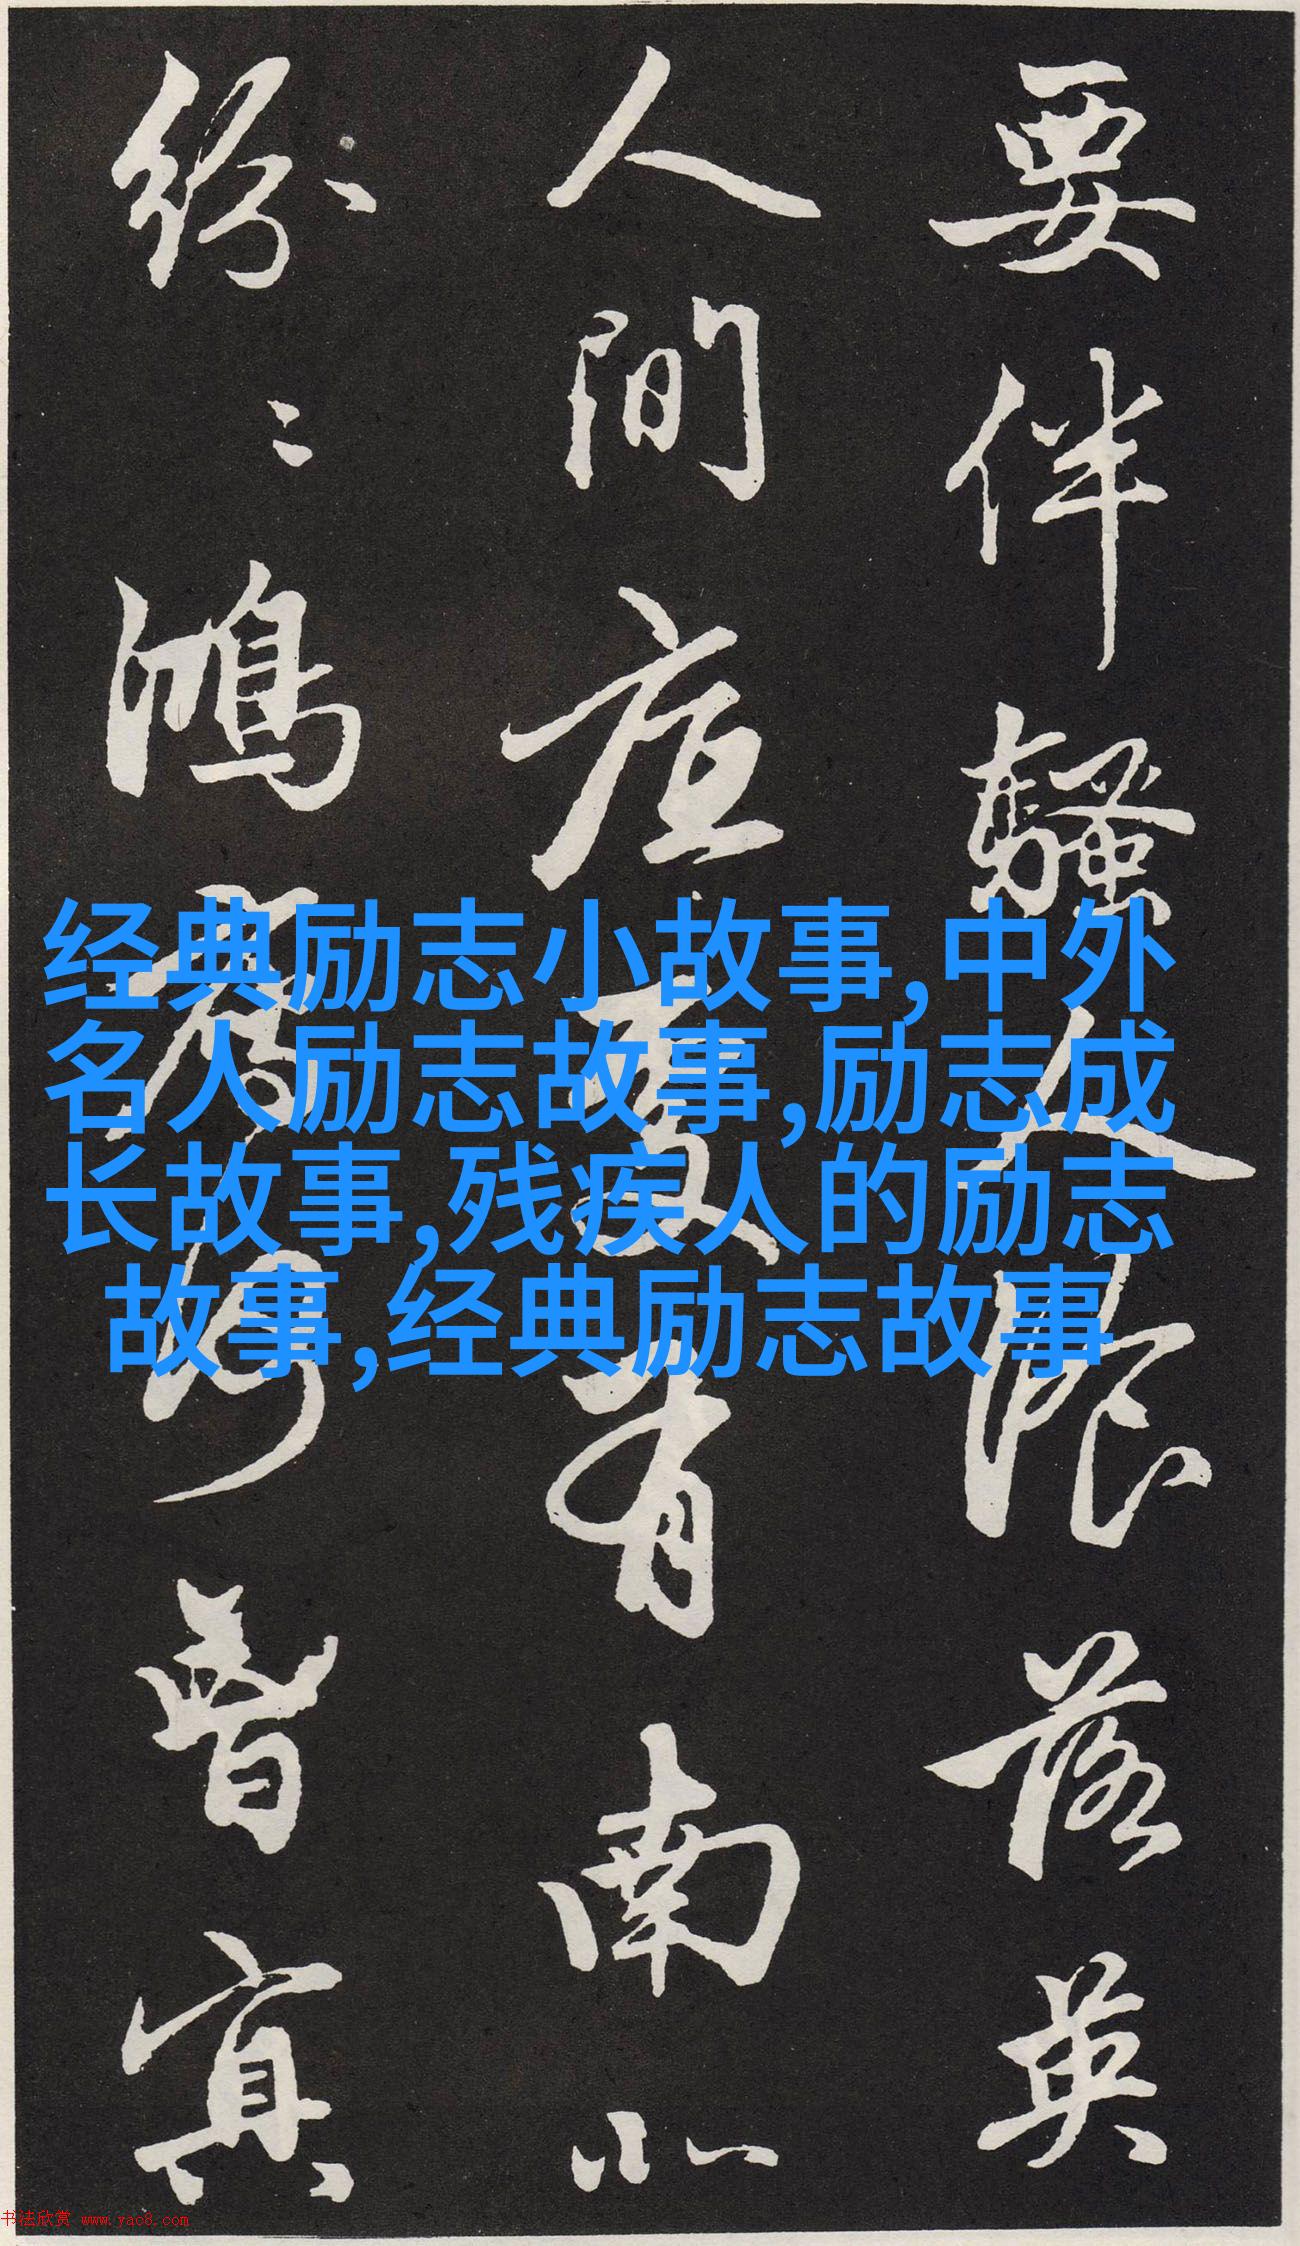 要伴騷人湌落英
人間底處有南北
紛〻鴻鴈何曾冥
经典励志小故事,中外
名人励志故事,励志成
长故事,残疾人的励志
故事,经典励志故事
书法欣赏 www.yac8.com